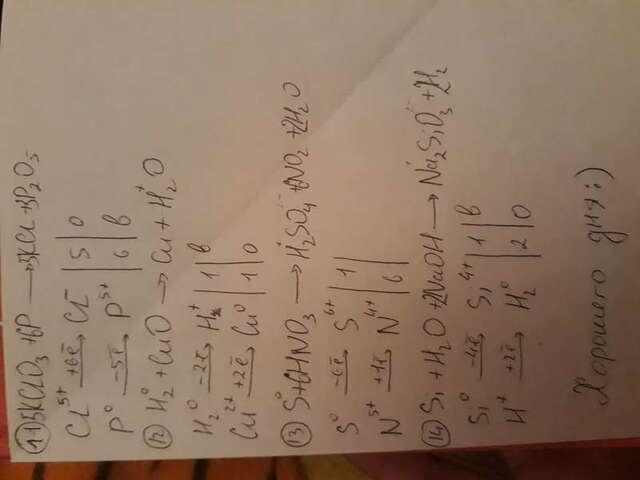 11 5KClO3 + 6P → 5KCl + 3P2O5
Cl^5+ +6ē → Cl^- | 5 | O
P^0 -5ē → P^5+ | 6 | B
12 H2^0 + CuO → Cu + H2^+O
H2^0 -2ē → H^+ | 1 | B
Cu^2+ +2ē → Cu^0 | 1 | O
13 S^0 + 6HNO3 → H2SO4 + 6NO2 + 2H2O
S^0 -6ē → S^6+ | 1 |
N^5+ +1ē → N^4+ | 6 |
14 Si + H2O + 2NaOH → Na2SiO3 + 2H2
Si^0 -4ē → Si^4+ | 1 | B
H^+ +2ē → H2^0 | 2 | O
Хорошего дня :)